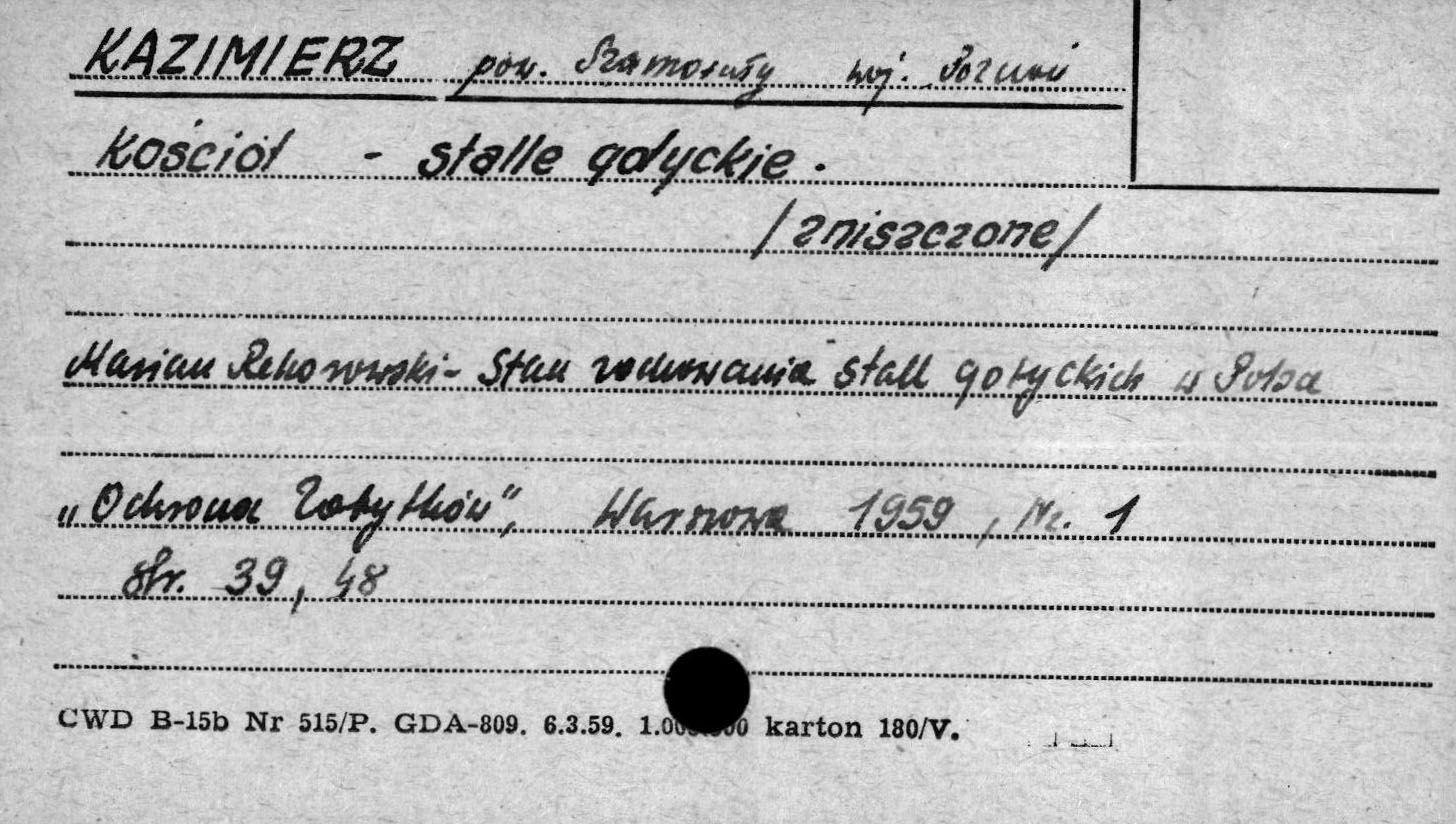 KAZIMIERZ pow. Szamotuły woj. Poznań
Kościół - stalle gotyckie.
/zniszczone/
Marian Rehorowski - Stan zachowania stall gotyckich w Polsce
"Ochrona Zabytków", Warszawa 1959, Nr. 1
str. 39, 48
CWD B-15b Nr 515/P. GDA-809. 6.3.59. karton 180/V.